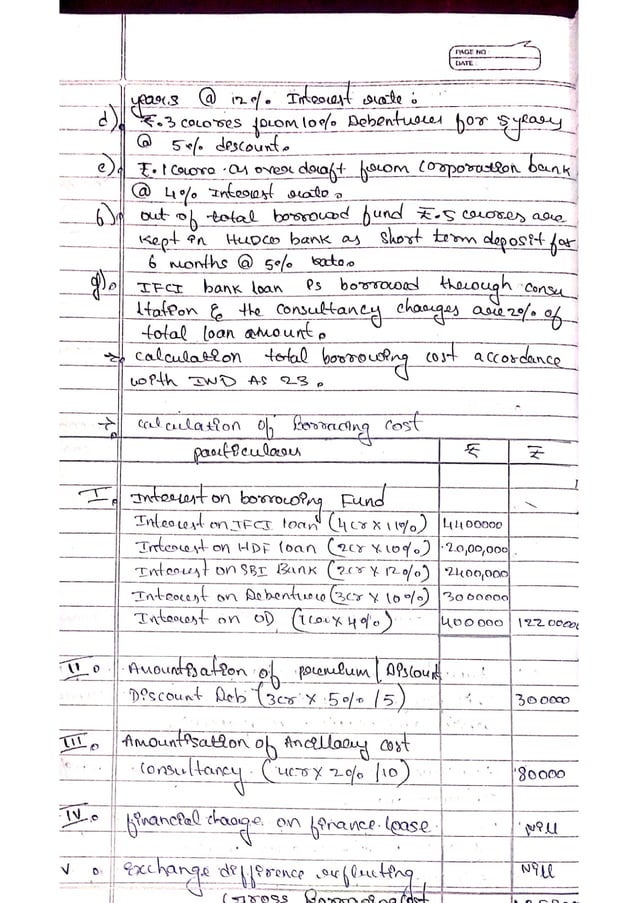 PAGE NO
DATE
years @ 12% Interest rate.
d). ₹.3 crores from 10% Debentures for 5 years
@ 5% descount.
e). ₹.1 crore as over draft from Corporation bank
@ 4% Interest rate.
f). out of total borrowed fund ₹.5 crores are
kept in HUDCO bank as short term deposit for
6 months @ 5% rate.
g). IFCI bank loan Ps borrowed through consu
ltation & the consultancy charges are 2% of
total loan amount.
→ calculation total borrowing cost accordance
with IND AS 23.
→ calculation of Borrowing cost
particulars ₹ ₹
I. Interest on borrowing Fund
Interest on IFCI loan (4cr x 11%) 4400000
Interest on HDF loan (2cr x 10%) 20,00,000
Interest on SBI Bank (2cr x 12%) 2400,000
Interest on Debenture (3cr x 10%) 3000000
Interest on OD (1cr x 4%) 400000 12200000
II. Amountisation of premium / Discount
Discount Deb (3cr x 5% / 5) 300000
III. Amountisation of Ancellary cost
consultancy (4cr x 2% / 10) 80000
IV. financial charge on finance lease Nill
V. Exchange difference reflecting Nill
(Gross Borrowing Cost